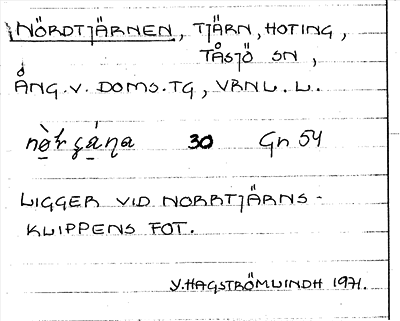 NÖRDTJÄRNEN, TJÄRN, HOTING,
TÅSJÖ SN,
ÅNG. V. DOMS. TG, VRNL. L.
30 Gn 54
LIGGER VID NORRTJÄRNS-
KLIPPENS FOT.
Y. HAGSTRÖMLINDH 1971.